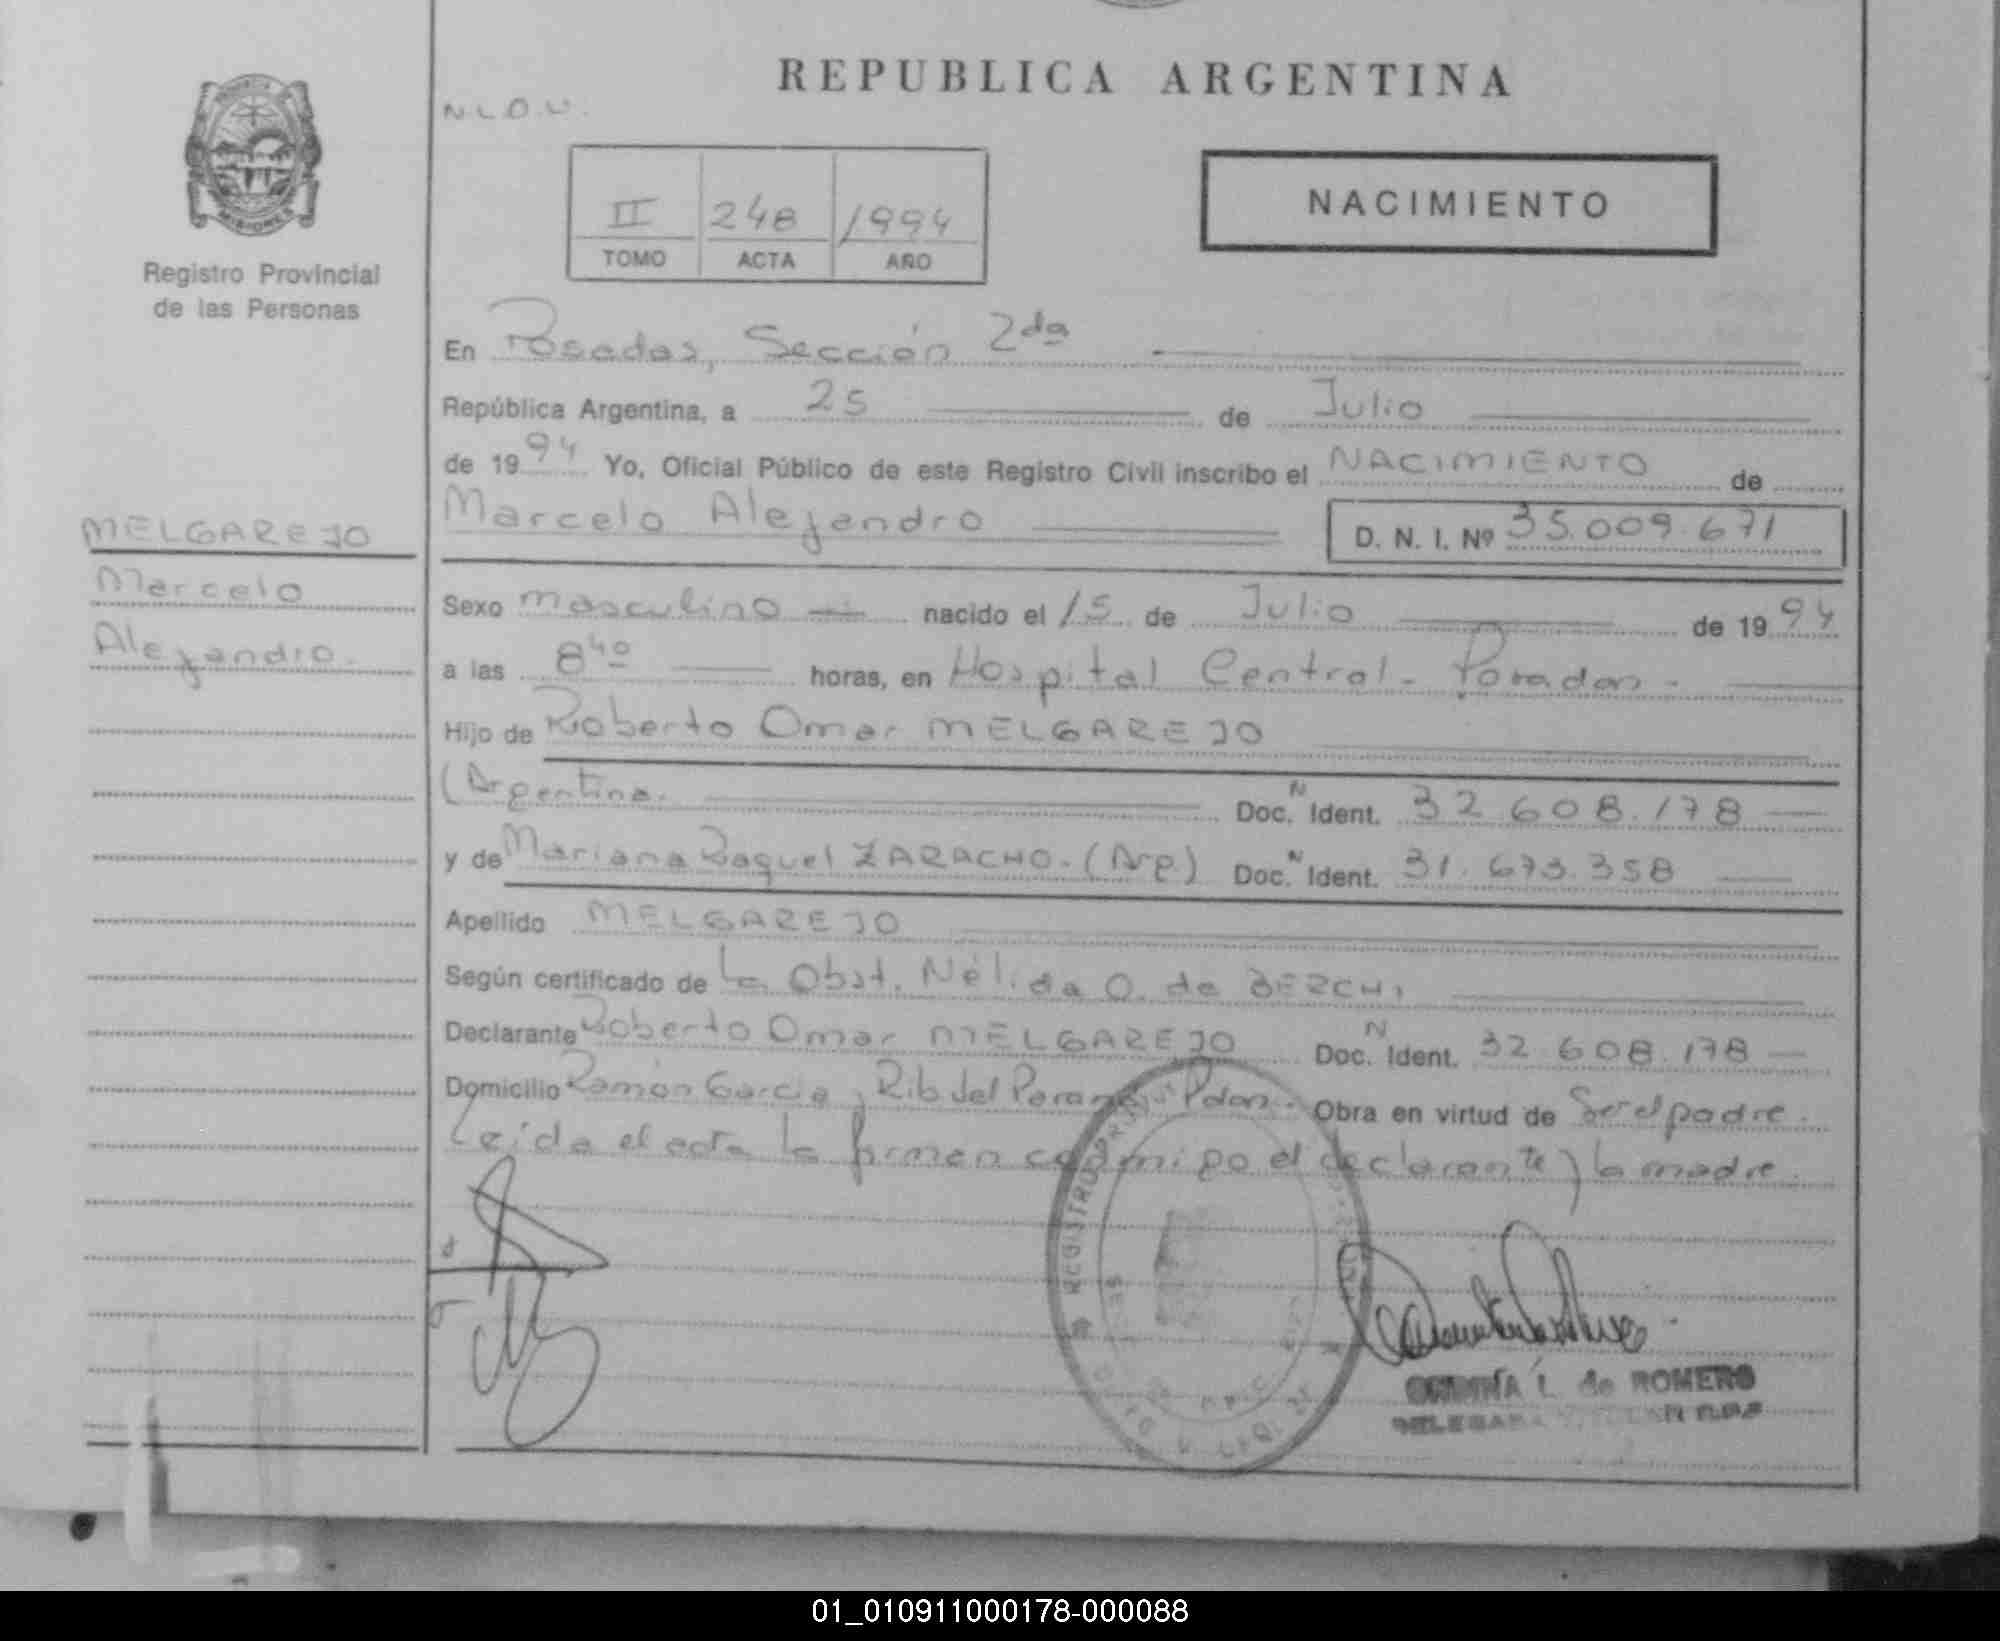 REPUBLICA ARGENTINA
MISIONES
Registro Provincial
de las Personas
N.L.O.U.
II 248 1994
TOMO ACTA AÑO
NACIMIENTO
En Posadas, Sección 2da
República Argentina, a 25 de Julio
de 1994 Yo, Oficial Público de este Registro Civil inscribo el NACIMIENTO de
Marcelo Alejandro D. N. I. Nº 35.009.671
MELGAREJO
Marcelo
Alejandro.
Sexo masculino nacido el 15 de Julio de 1994
a las 8 40 horas, en Hospital Central - Posadas -
Hijo de Roberto Omar MELGAREJO
(Argentina. Doc. N Ident. 32.608.178
y de Mariana Raquel ZARACHO. (Arg) Doc. N Ident. 31.673.358
Apellido MELGAREJO
Según certificado de la Obst. Nélida O. de BERCHI
Declarante Roberto Omar MELGAREJO Doc. N Ident. 32.608.178
Domicilio Ramón Garcia y Rib del Parana Pdas. Obra en virtud de Ser el padre.
Leida el acta la firman conmigo el declarante y la madre.
REGISTRO
I. de ROMERO
01_010911000178-000088